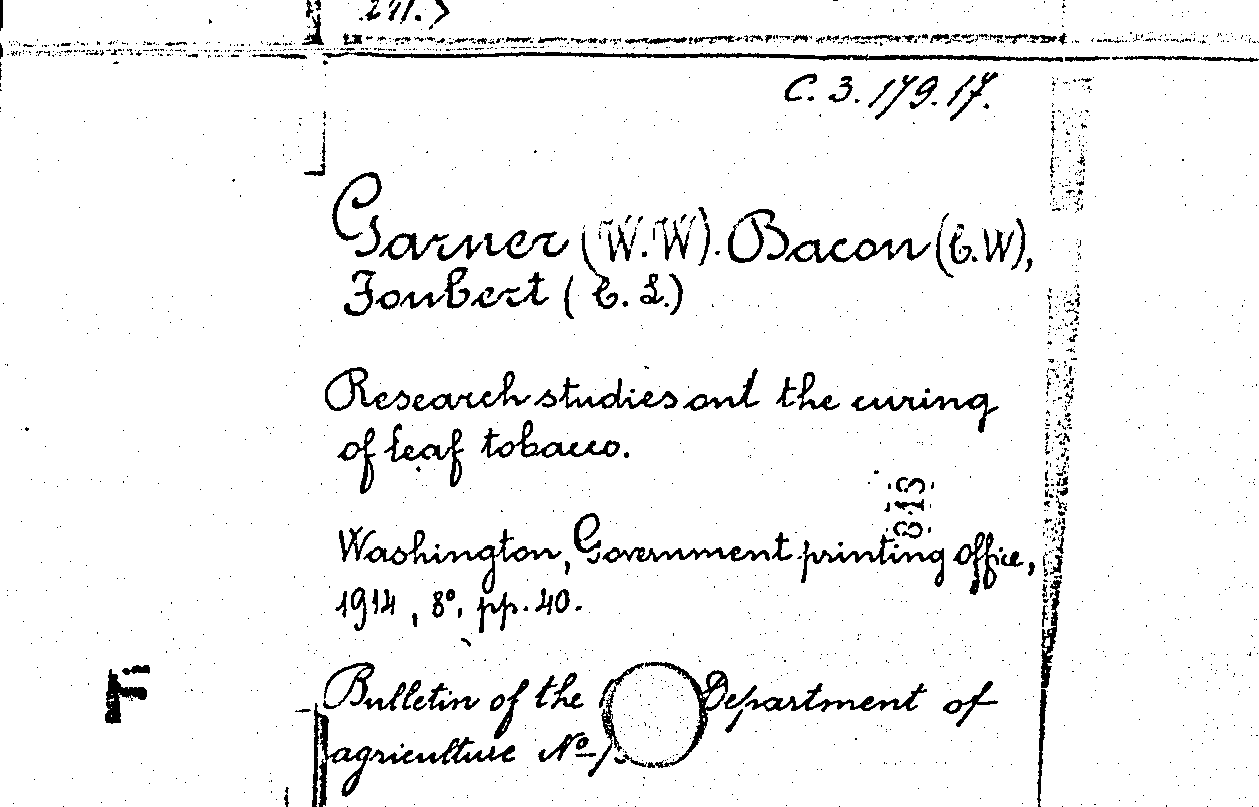 C. 3. 179. 17.
Garner (W. W). Bacon (C. W),
Foubert (C. L.)
Research studies ont the curing
of leaf tobacco.
Washington, Government printing office,
1914, 8°, pp. 40.
Bulletin of the Department of
agriculture Nº
843
Fi